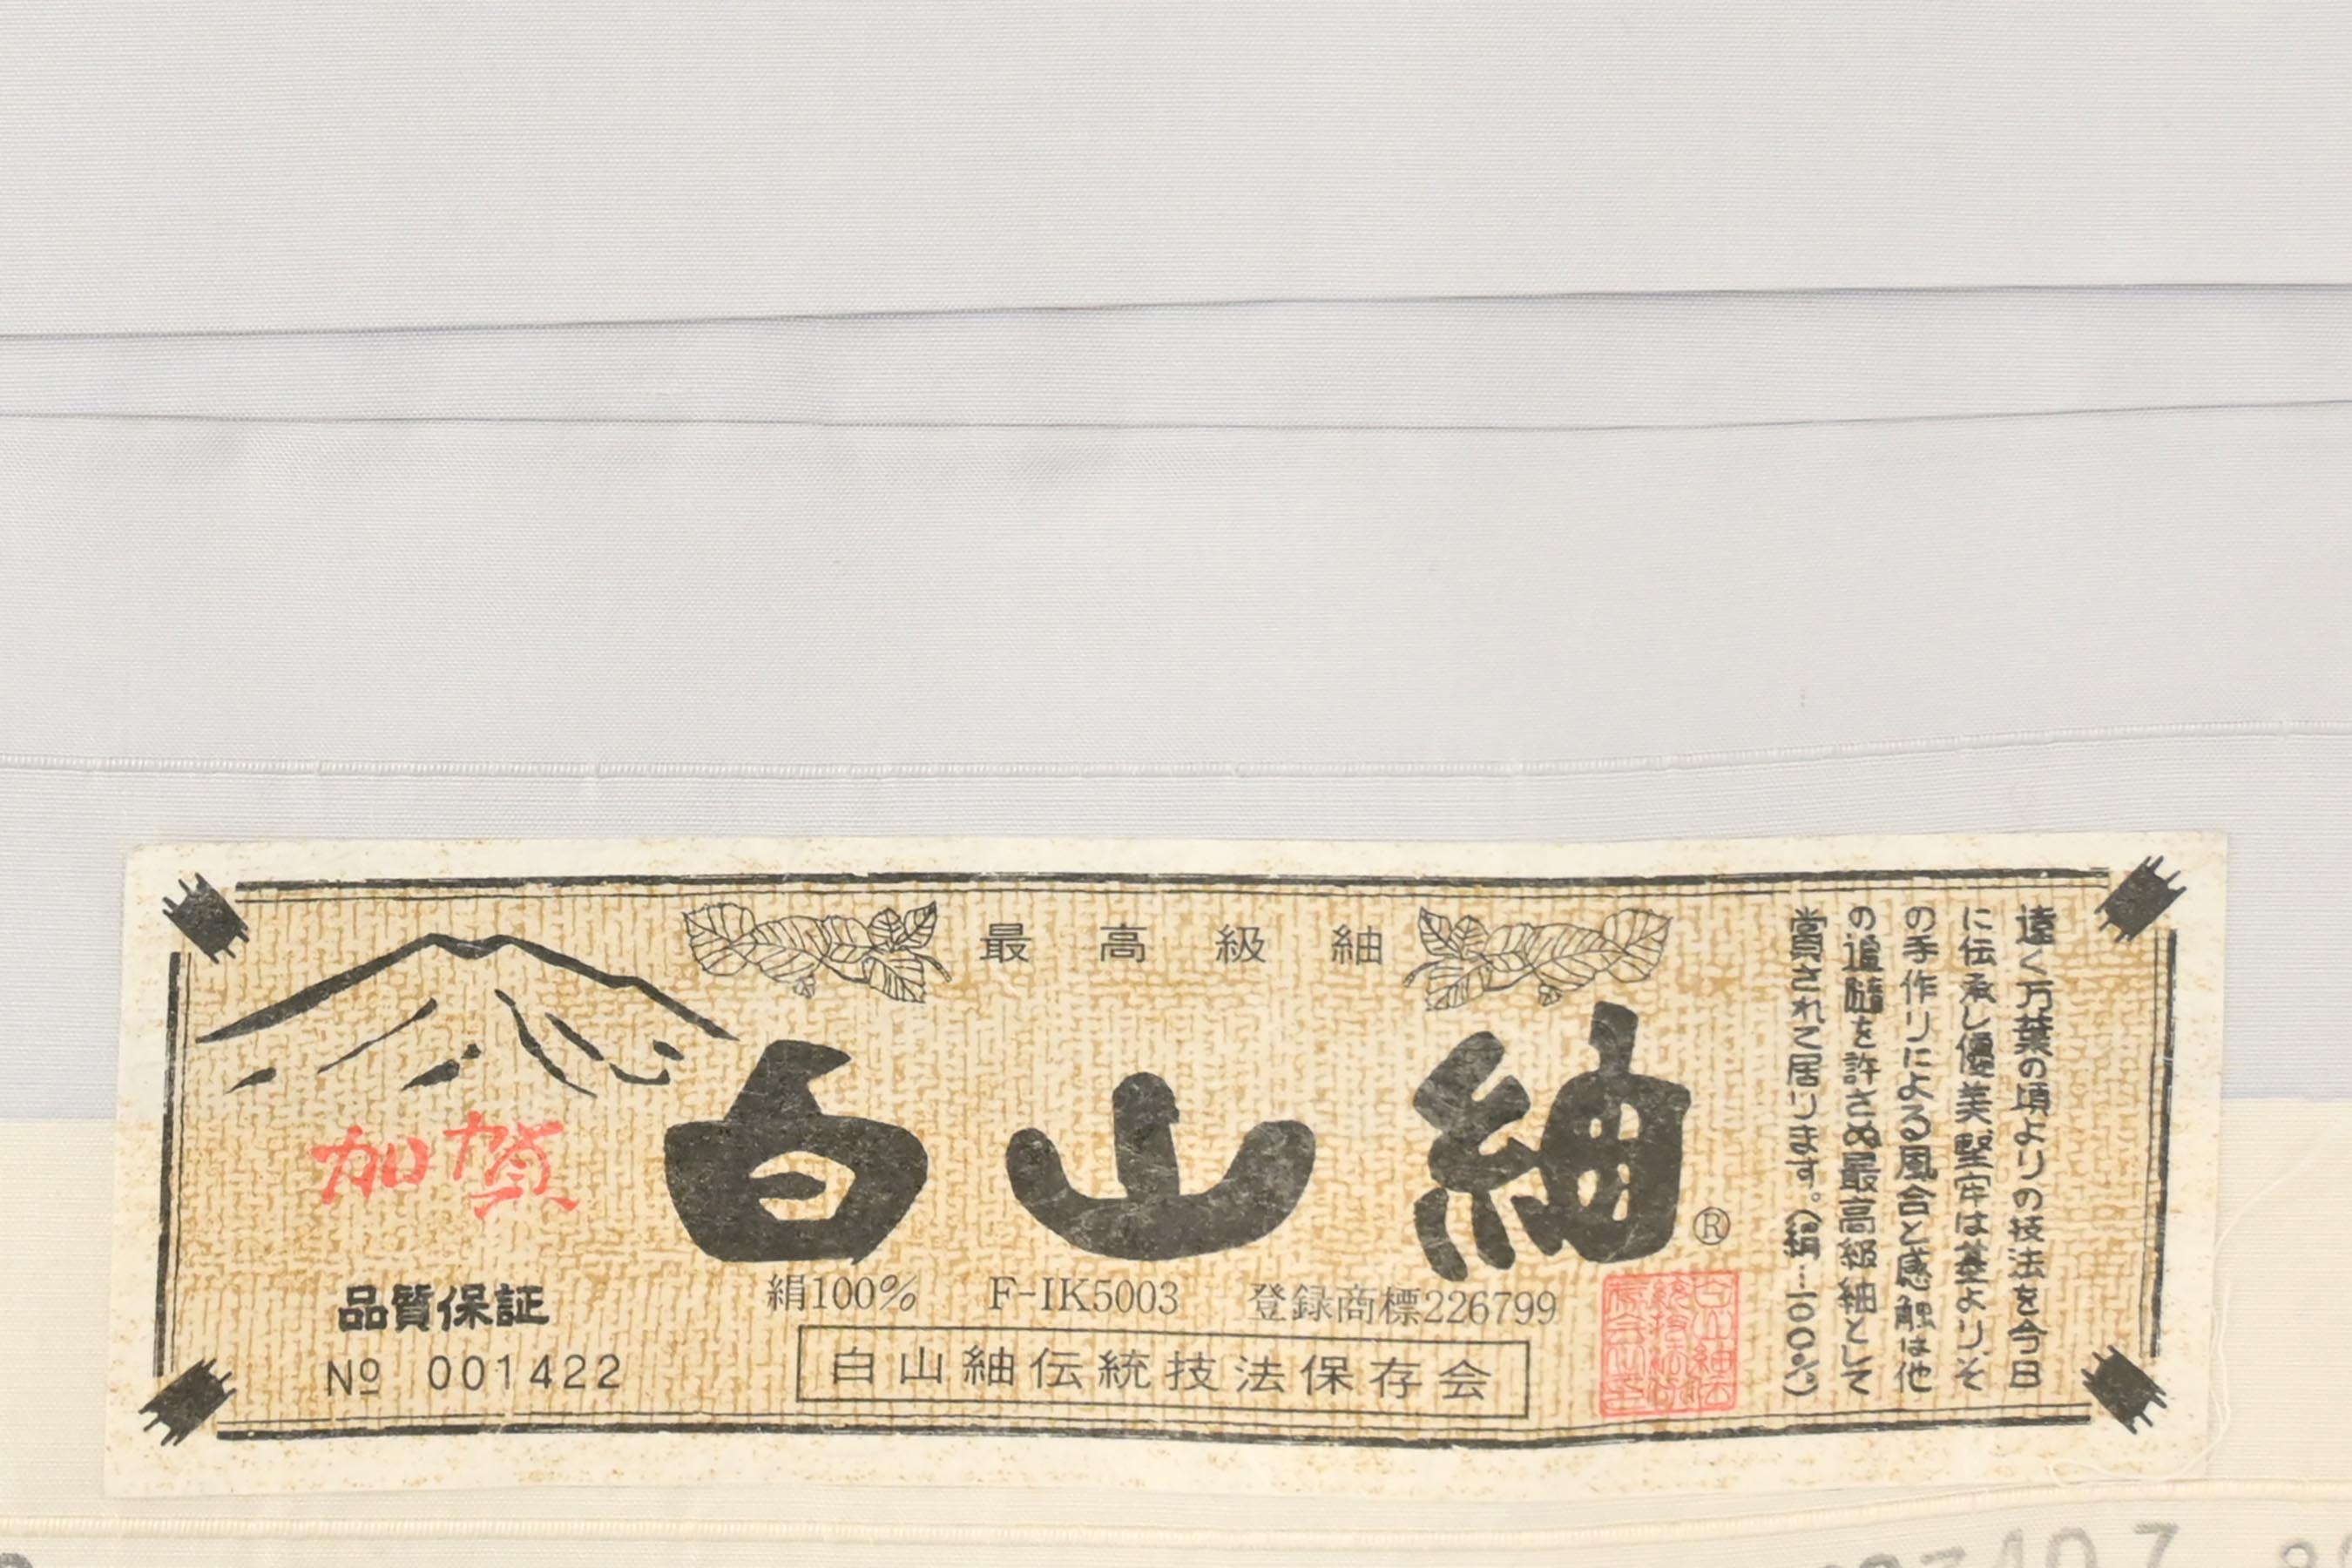 最高級紬
加賀
白山紬®
品質保証
№ 001422
絹100% F-IK5003 登録商標226799
白山紬伝統技法保存会
遠く万葉の頃よりの技法を今日
に伝承し優美堅牢は基より、そ
の手作りによる風合と感触は他
の追随を許さぬ最高級紬として
賞されて居ります。(絹…100%)